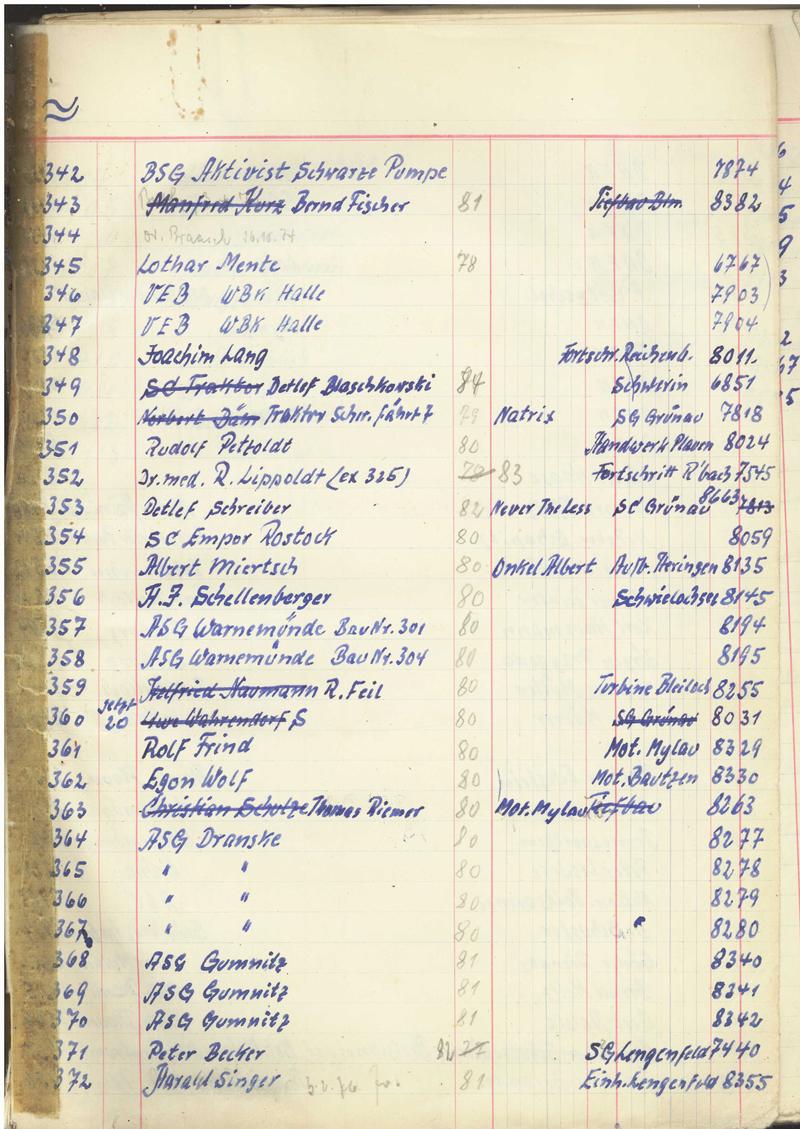 342 BSG Aktivist Schwarze Pumpe 7874
343 Manfred Kurz Bernd Fischer 81 Tiefbau Bln. 8382
344 Dr. Braasch 16.10.74
345 Lothar Mente 78 6767
346 VEB WBK Halle 7903
347 VEB WBK Halle 7904
348 Joachim Lang Fortschr. Reichenb. 8011.
349 SC Traktor Detlef Blaschkowski 84 Schwerin 6851
350 Norbert Traktor Schw. fährt 7 79 Natrix SG Grünau 7818
351 Rudolf Petzoldt 80 Handwerk Plauen 8024
352 Dr. med. R. Lippoldt (ex 325) 78 83 Fortschritt R'bach 7545
353 Detlef Schreiber 82 Never The Less SC Grünau 8663 7813
354 SC Empor Rostock 80 8059
355 Albert Miertsch 80 Onkel Albert Aufb. Heringen 8135
356 H.F. Schellenberger 80 Schwielochsee 8145
357 ASG Warnemünde Bau Nr. 301 80 8194
358 ASG Warnemünde Bau Nr. 304 80 8195
359 Helfried Naumann R. Feil 80 Turbine Bleiloch 8255
360 jetzt 20 Uwe Wahrendorf S 80 SG Grünau 8031
361 Rolf Frind 80 Mot. Mylau 8329
362 Egon Wolf 80 Mot. Bautzen 8330
363 Christian Schulze Thomas Riemer 80 Mot. Mylau Tiefbau 8263
364 ASG Dranske 80 8277
365 " " 80 8278
366 " " 80 8279
367 " " 80 8280
368 ASG Gumnitz 81 8340
369 ASG Gumnitz 81 8341
370 ASG Gumnitz 81 8342
371 Peter Becker 82 77 SG Lengenfeld 7440
372 Harald Singer 81 Einh. Lengenfeld 8355